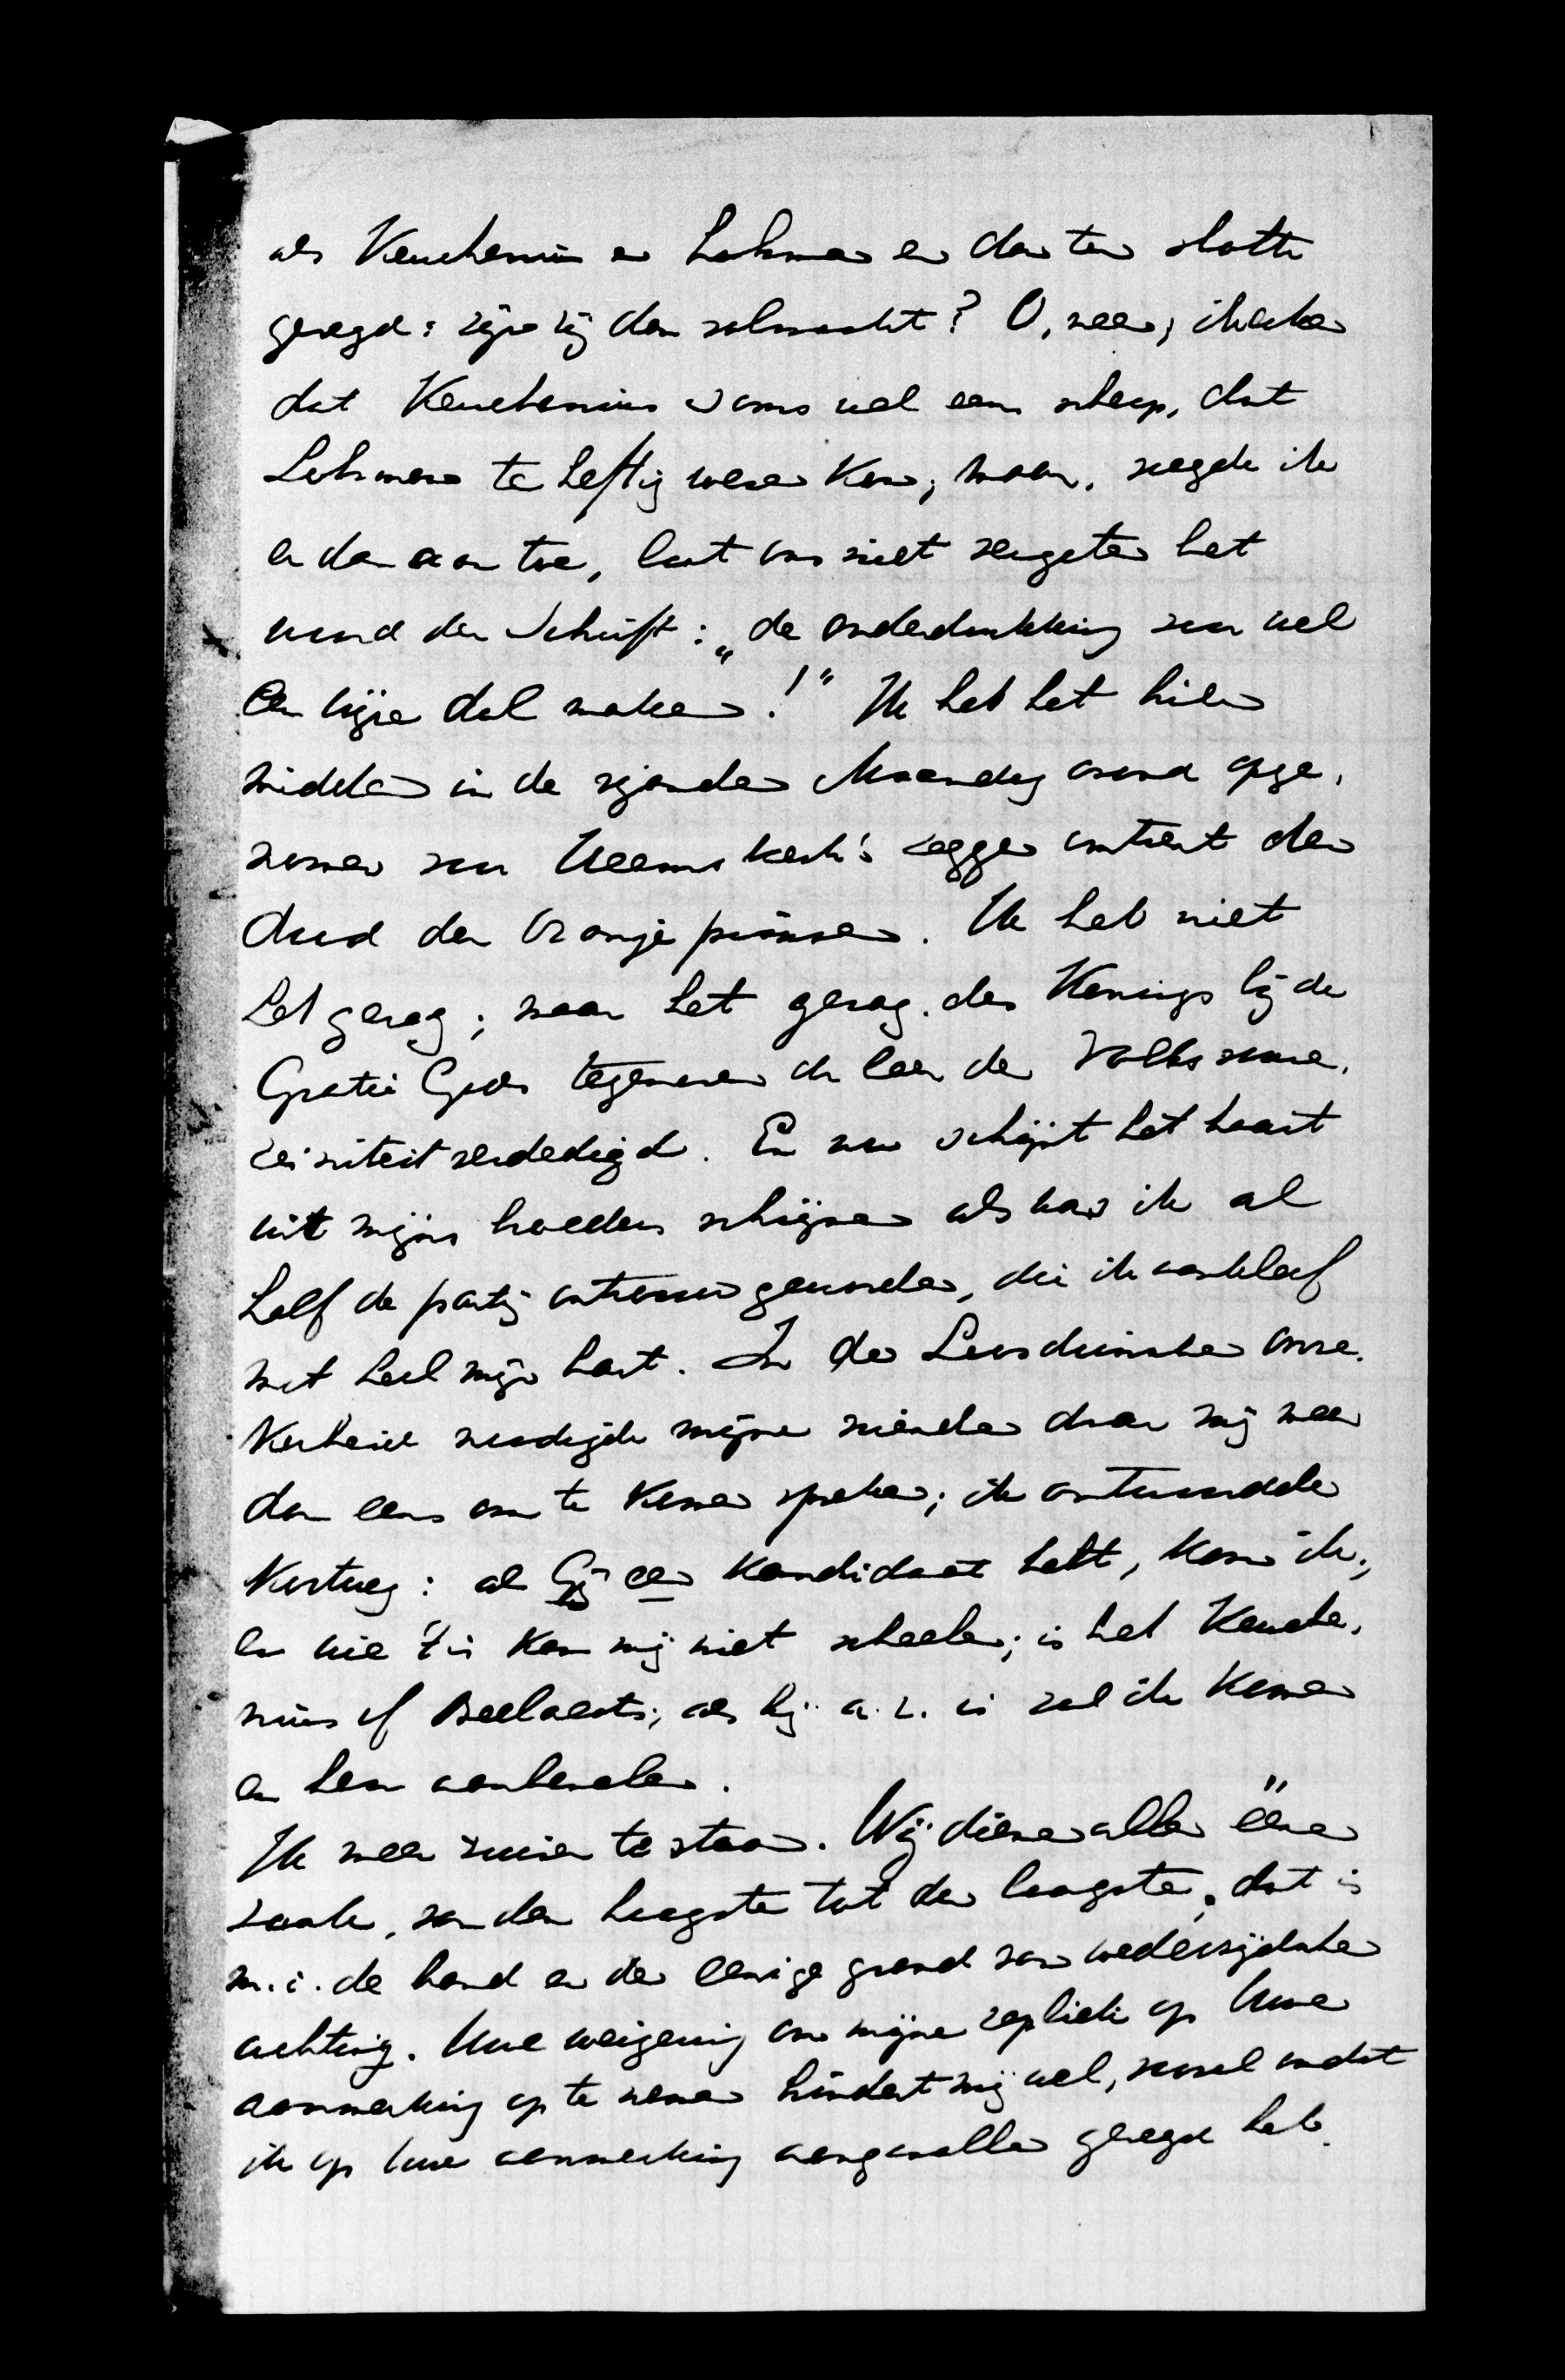 als Keuchenius en Lohman en dan ten slotte
gevegd: zijn zij dan volmaakt? O, neen; ik erken
dat Keuchenius soms wel eens scherp, dat
Lohman te heftig wezen kan; maar, voegde ik
er dan aan toe, laat ons niet vergeten het
woord der Schrift: „de onderdrukking zou wel
een wijze dol maken!" Ik heb het hier
midden in de vijanden Maandag avond opge,
nomen voor Heemskerk's zegge omtrent den
dood der Oranje prinsen. Ik heb niet
het gezag; maar het gezag des Konings bij de
Gratie Gods tegenover de leer der Volkssouve,
reiniteit verdedigd. En nu schijnt het haast
uit mijns broeders schrijven als was ik al
half de partij ontrouw geworden, die ik aankleef
met heel mijn hart. In de Leusdensche
noodigde mijne vrienden daar mij meer
dan eens om te komen spreken; ik antwoordde
Kortweg: als Gij een Kandidaat hebt, kom ik;
en wie 't is kan mij niet schelen; is het Keuche,
nius of Beelaerts; als hij a.r. is zal ik komen
en hem aanbevelen.
Ik meen zuiver te staan. Wij dienen allen ééne
zaak, van den hoogste tot den laagste; dat is
m.i. de band en de eenige grond van wederzijdsche
achting. Uwe weigering om mijne repliek op Uwe
aanmerking op te nemen hindert mij wel, vooral omdat
ik op Uwe aanmerking aangevallen gevegd heb.